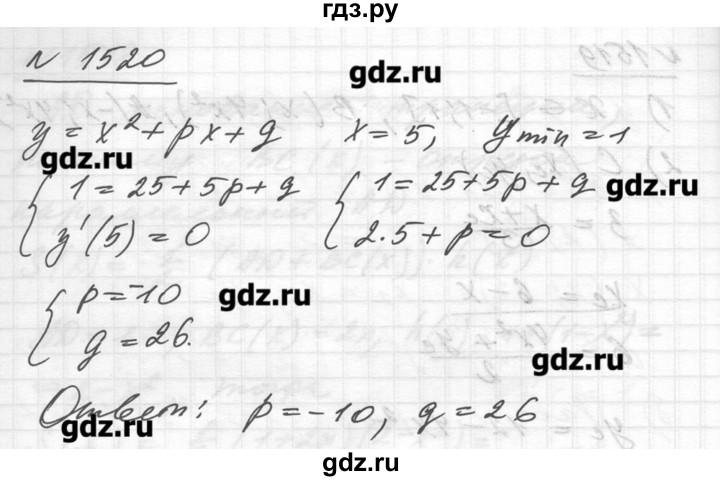 гдз.ру
№ 1520
gdz.ru
y = x² + px + q   x = 5, y min = 1
gdz.ru
{ 1 = 25 + 5p + q   { 1 = 25 + 5p + q
gdz.ru
y'(5) = 0   2·5 + p = 0
{ p = -10
gdz.ru
q = 26.
gdz.ru
Ответ: p = -10, q = 26
gdz.ru
gdz.ru